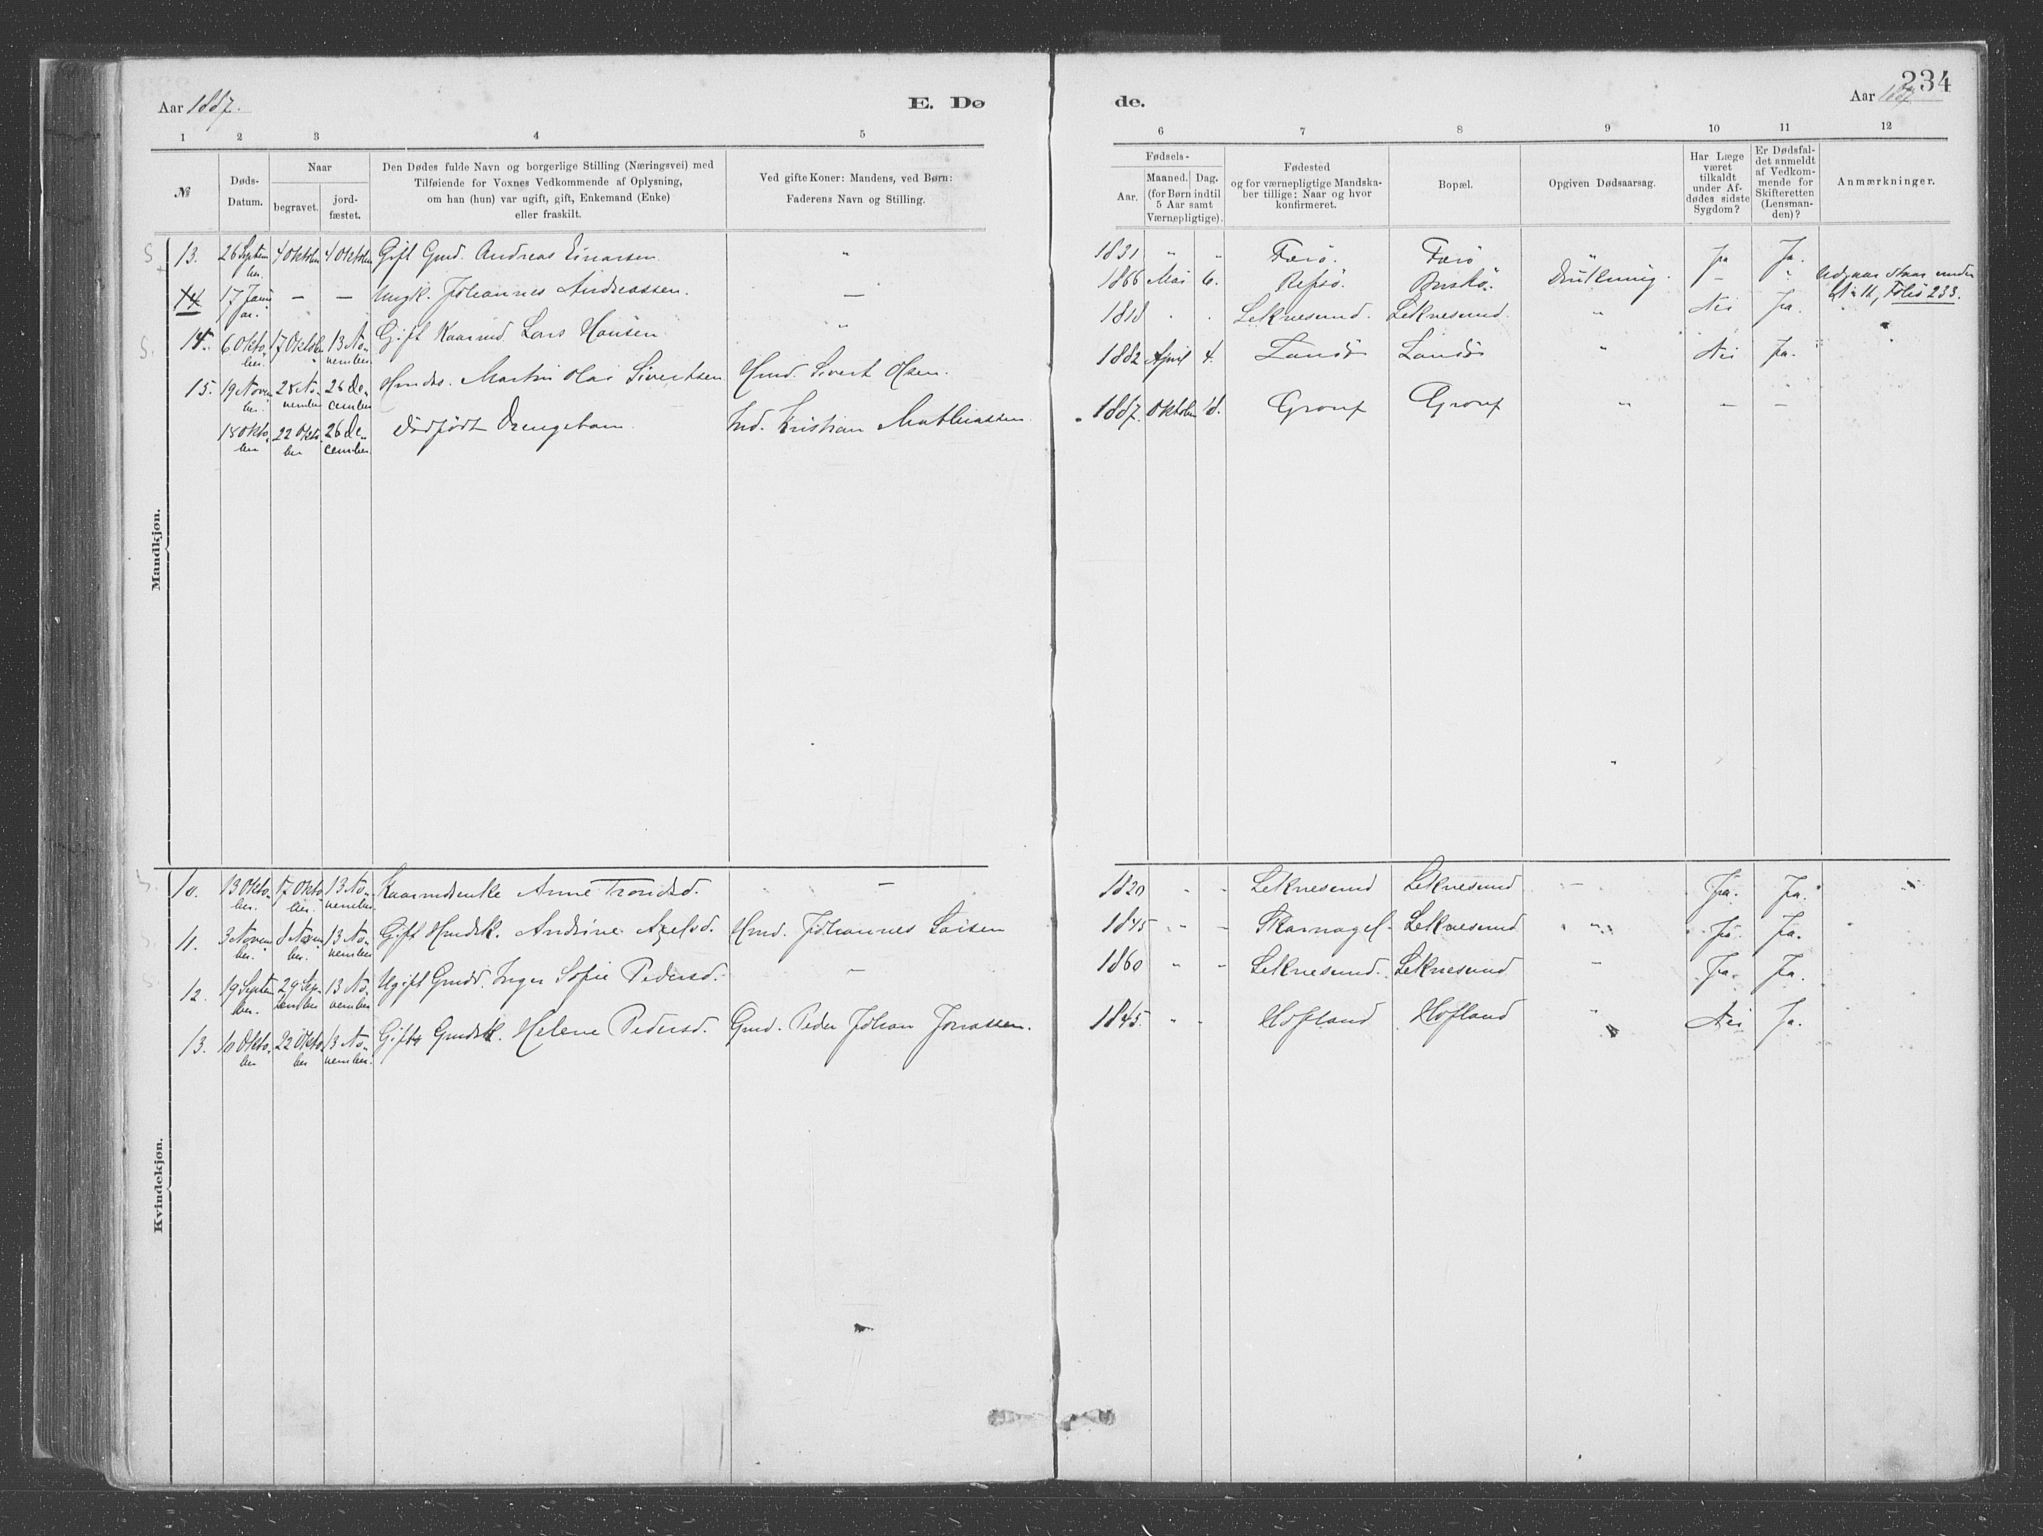 Aar 1887.
E. Dø
de.
234
Aar 1887
1 2 3 4 5 6 7 8 9 10 11 12
№
Døds-
Datum.
Naar
begravet.
jord-
fæstet.
Den Dødes fulde Navn og borgerlige Stilling (Næringsvei) med
Tilføiende for Voxnes Vedkommende af Oplysning,
om han (hun) var ugift, gift, Enkemand (Enke)
eller fraskilt.
Ved gifte Koner: Mandens, ved Børn:
Faderens Navn og Stilling.
Fødsels-
Aar.
Maaned. Dag.
(for Børn indtil
5 Aar samt
Værnepligtige).
Fødested
og for værnepligtige Mandska-
ber tillige: Naar og hvor
konfirmeret.
Bopæl.
Opgiven Dødsaarsag.
Har Læge
været
tilkaldt
under Af-
dødes sidste
Sygdom?
Er Dødsfal-
det anmeldt
af Vedkom-
mende for
Skifteretten
(Lensman-
den)?
Anmærkninger.
Mandkjøn.
13. 26 Septem ber. 4 Oktober 4 Oktober Gift Gmd. Andreas Einarsen. " 1831 " " Færø. Færø " Ja Ja.
14 17 Janu ar. — — Ungk. Johannes Andreassen. — 1866 Mai 6. Refsø. Drukning. — " Udgaar staar under № 11, Folio 233.
14. 6 Okto ber. 17 Oktober 13 No vember Gift Kaarmd Lars Hansen " 1818 . . Leknesund. Leknesund. " Nei Ja.
15. 19 Novem ber. 28 No vember 26 De cember Hmdss. Martin Olai Sivertsen Hmd. Sivert Olsen. 1882 April 4. Landø Landø " Nei Ja.
18 Okto ber 22 Okto ber 26 De cember. Dødfødt Drengebarn. Ind. Kristian Mathiassen 1887. Oktober 18. Gronf Gronf " — —
Kvindekjøn.
10. 13 Okto ber. 17 Okto ber. 13 No vember Kaarmdsenke Anne Trondsd. — 1820 " " Leknesund Leknesund — Ja. Ja.
11. 3 Novem ber. 8 Novem ber. 13 No vember Gift Hmdsk. Andrine Axelsd. Hmd. Johannes 1845 " " Skarnagel. Leknesund " Ja. Ja.
12. 19 Septem ber. 29 Sep tember 13 No vember Ugift Gmdd. Inger Sofie Pedersd. — 1860 " " Leknesund. Leknesund — Ja. Ja.
13. 10 Okto ber 22 Okto ber 13 No vember. Gift Gmdsk. Helene Pedersd. Gmd. Peder Johan Jonassen. 1845. " " Hofland Hofland " Nei Ja.